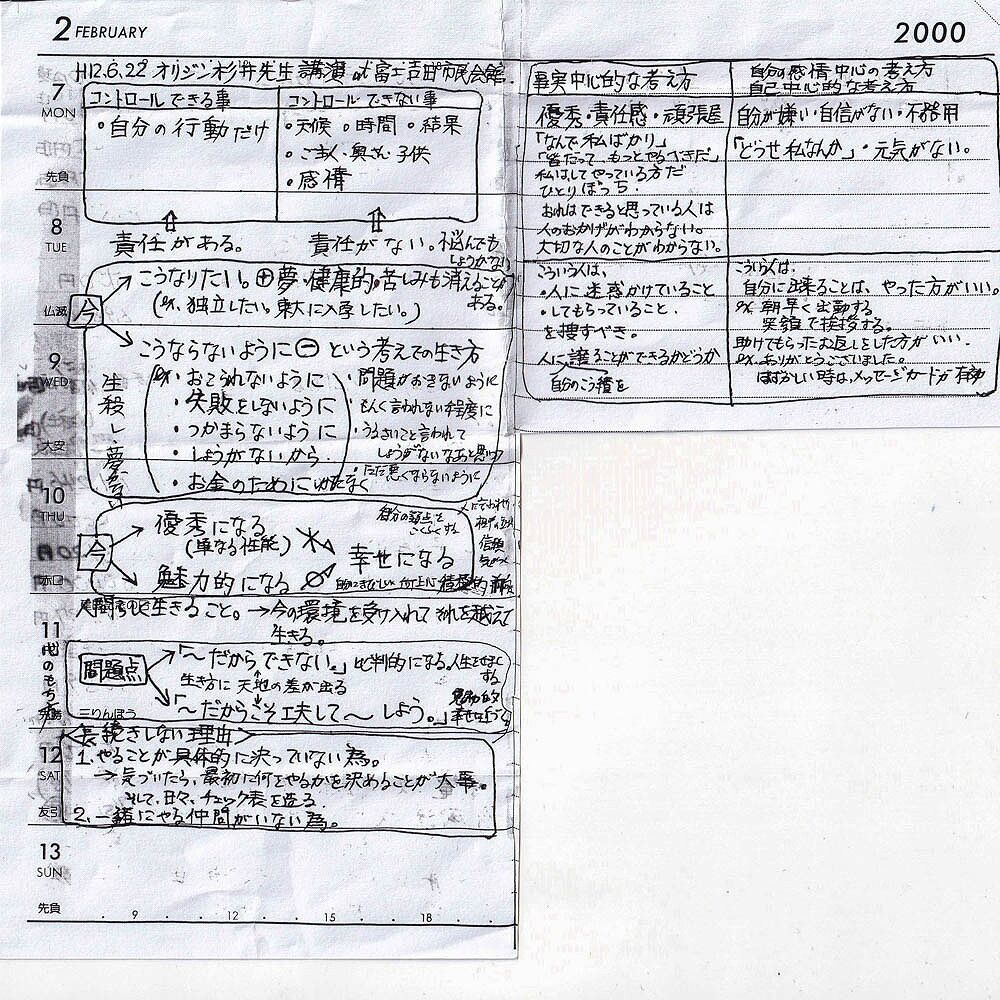 2 FEBRUARY
2000
H12.6.22 オリジン杉井先生講演 at 富士吉田市民会館.
7
MON
先負
コントロールできる事
・自分の行動だけ
コントロールできない事
・天候 。時間 ・結果
・ご主人・奥さん・子供
・感情
8
TUE
仏滅
責任がある。
責任がない。悩んでも
しょうがない
今
こうなりたい。⊕夢・健康的・苦しみも消えることが
ある。
(ex. 独立したい。東大に入学したい。)
9
WED
大安
こうならないように⊖という考えでの生き方
生殺し・夢がない
ex・おこられないように
・失敗をしないように
・つかまらないように
・しょうがないから
・お金のためにしかたなく
・問題がおきないように
もんく言われない程度に
・うるさいこと言われて
しょうがないなあと思いつつ
・ただ悪くならないように
10
THU
赤口
今
優秀になる
(単なる性能)
魅力的になる
幸せになる
自分の弱点を
人間らしく生きること。→今の環境を受け入れてそれを越えて
生きる。
11
三りんぼう
問題点
「～だからできない。」批判的になる。
生き方に天地の差が出る
「～だからこそ工夫して～しよう。」
12
SAT
友引
長続きしない理由
1. やることが具体的に決っていない為。
→気づいたら、最初に何をやるかを決めることが大事。
そして、日々、チェック表を造る
2. 一緒にやる仲間がいない為。
13
SUN
先負
9 12 15 18
事実中心的な考え方
優秀・責任感・頑張屋
「なんで私ばかり」
「皆だって、もっとやるべきだ」
私はしてやっている方だ
ひとりぼっち.
おれはできると思っている人は
人のおかげがわからない。
大切な人のことがわからない。
こういう人は、
・人に迷惑かけていること
・してもらっていること.
を捜すべき。
人に譲ることができるかどうか
自分の感情中心の考え方
自己中心的な考え方
自分が嫌い・自信がない・不器用
「どうせ私なんか」・元気がない。
こういう人は.
自分に出来ることは、やった方がいい。
ex. 朝早く出勤する
笑顔で挨拶する。
助けてもらったお返しをした方がいい.
ex. ありがとうございました。
はずかしい時は、メッセージカードが有効